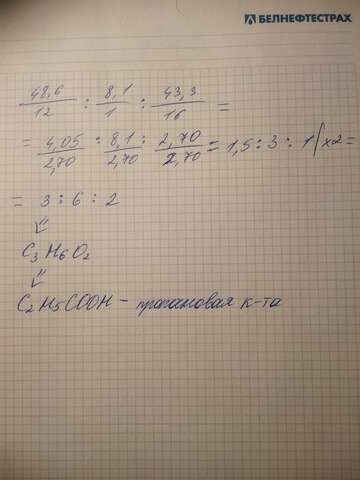 БЕЛНЕФТЕСТРАХ
48,6/12 : 8,1/1 : 43,3/16 =
= 4,05/2,70 : 8,1/2,70 : 2,70/2,70 = 1,5 : 3 : 1 | x2 =
= 3 : 6 : 2
⇓
C₃H₆O₂
⇓
C₂H₅COOH – пропановая к-та